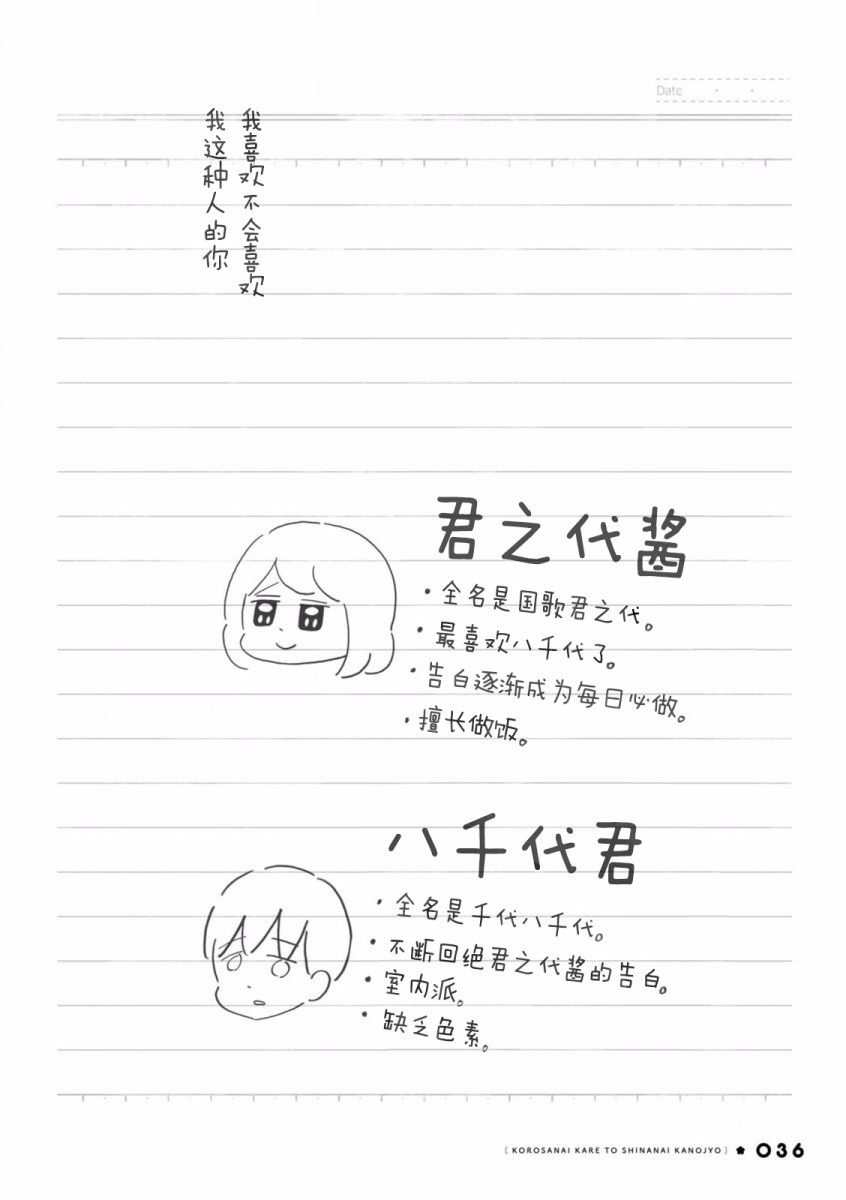 Date
我喜欢不会喜欢
我这种人的你
君之代酱
・全名是国歌君之代。
・最喜欢八千代了。
・告白逐渐成为每日必做。
・擅长做饭。
八千代君
・全名是千代八千代。
・不断回绝君之代酱的告白。
・室内派。
・缺乏色素。
[ KOROSANAI KARE TO SHINANAI KANOJYO ] 036